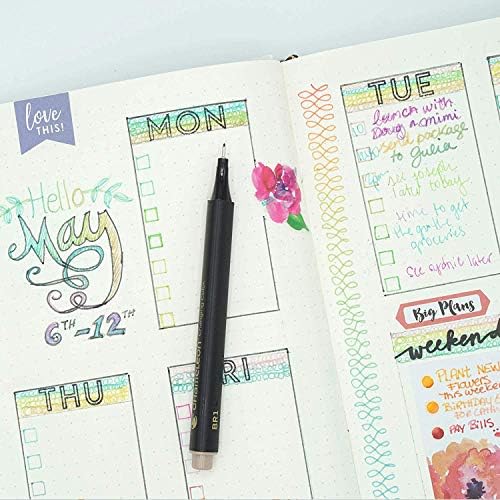 love
THIS!
MON
Hello
May
6TH-12TH
THU
FRI
chameleon
BR1
TUE
lunch with
Doug & mimi
send package
to Julia
see joseph
later today
time to get
the
groceries
see later
Big Plans
weekend
PLANT NEW
FLOWERS
THIS WEEKEND
BIRTHDAY
FOR
PAY BILLS